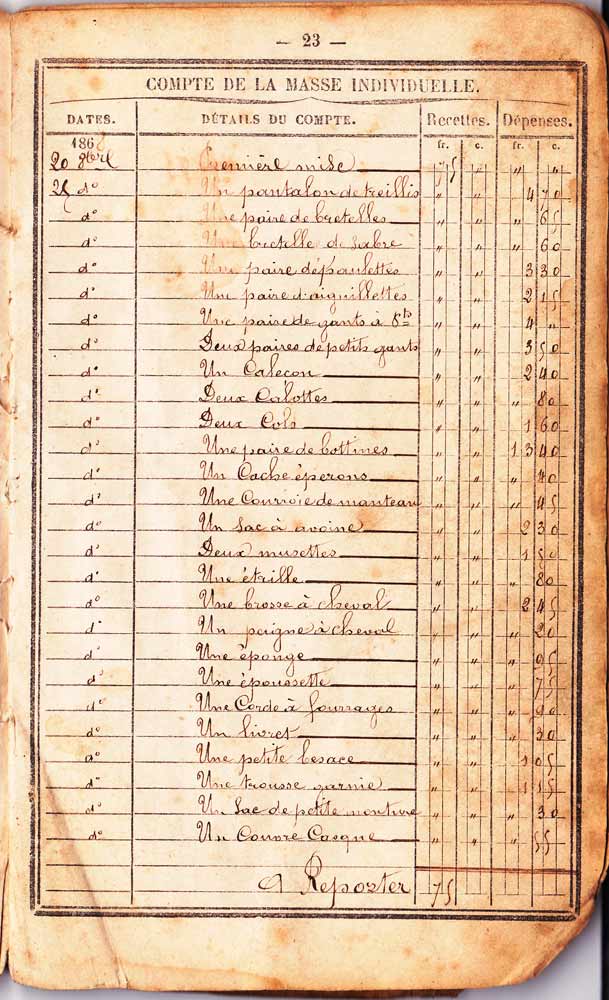 — 23 —
COMPTE DE LA MASSE INDIVIDUELLE.
DATES. DÉTAILS DU COMPTE. Recettes. Dépenses.
1868 fr. c. fr. c.
20 9bre Première mise 75 " " "
25 do Un pantalon de treillis " " 4 70
do Une paire de bretelles " " " 65
do Une bretelle de sabre " " " 60
do Une paire d'épaulettes " " 3 30
do Une paire d'aiguillettes " " 2 15
do Une paire de gants à 8ts " " 4 "
do Deux paires de petits gants " " 3 50
do Un Caleçon " " 2 40
do Deux Calottes " " " 80
do Deux Cols " " 1 60
do Une paire de bottines " " 13 40
do Un Cache éperons " " " 40
do Une Courroie de manteau " " " 45
do Un sac à avoine " " 2 30
do Deux musettes " " 1 50
do Une étrille " " " 80
do Une brosse à cheval " " 2 45
do Un peigne à cheval " " " 20
do Une éponge " " " 95
do Une époussette " " " 75
do Une Corde à fourrages " " " 90
do Un livret " " " 30
do Une petite besace " " 1 05
do Une trousse garnie " " 1 15
do Un Sac de petite monture " " " 30
do Un Couvre Casque " " " 55
A Reporter 75